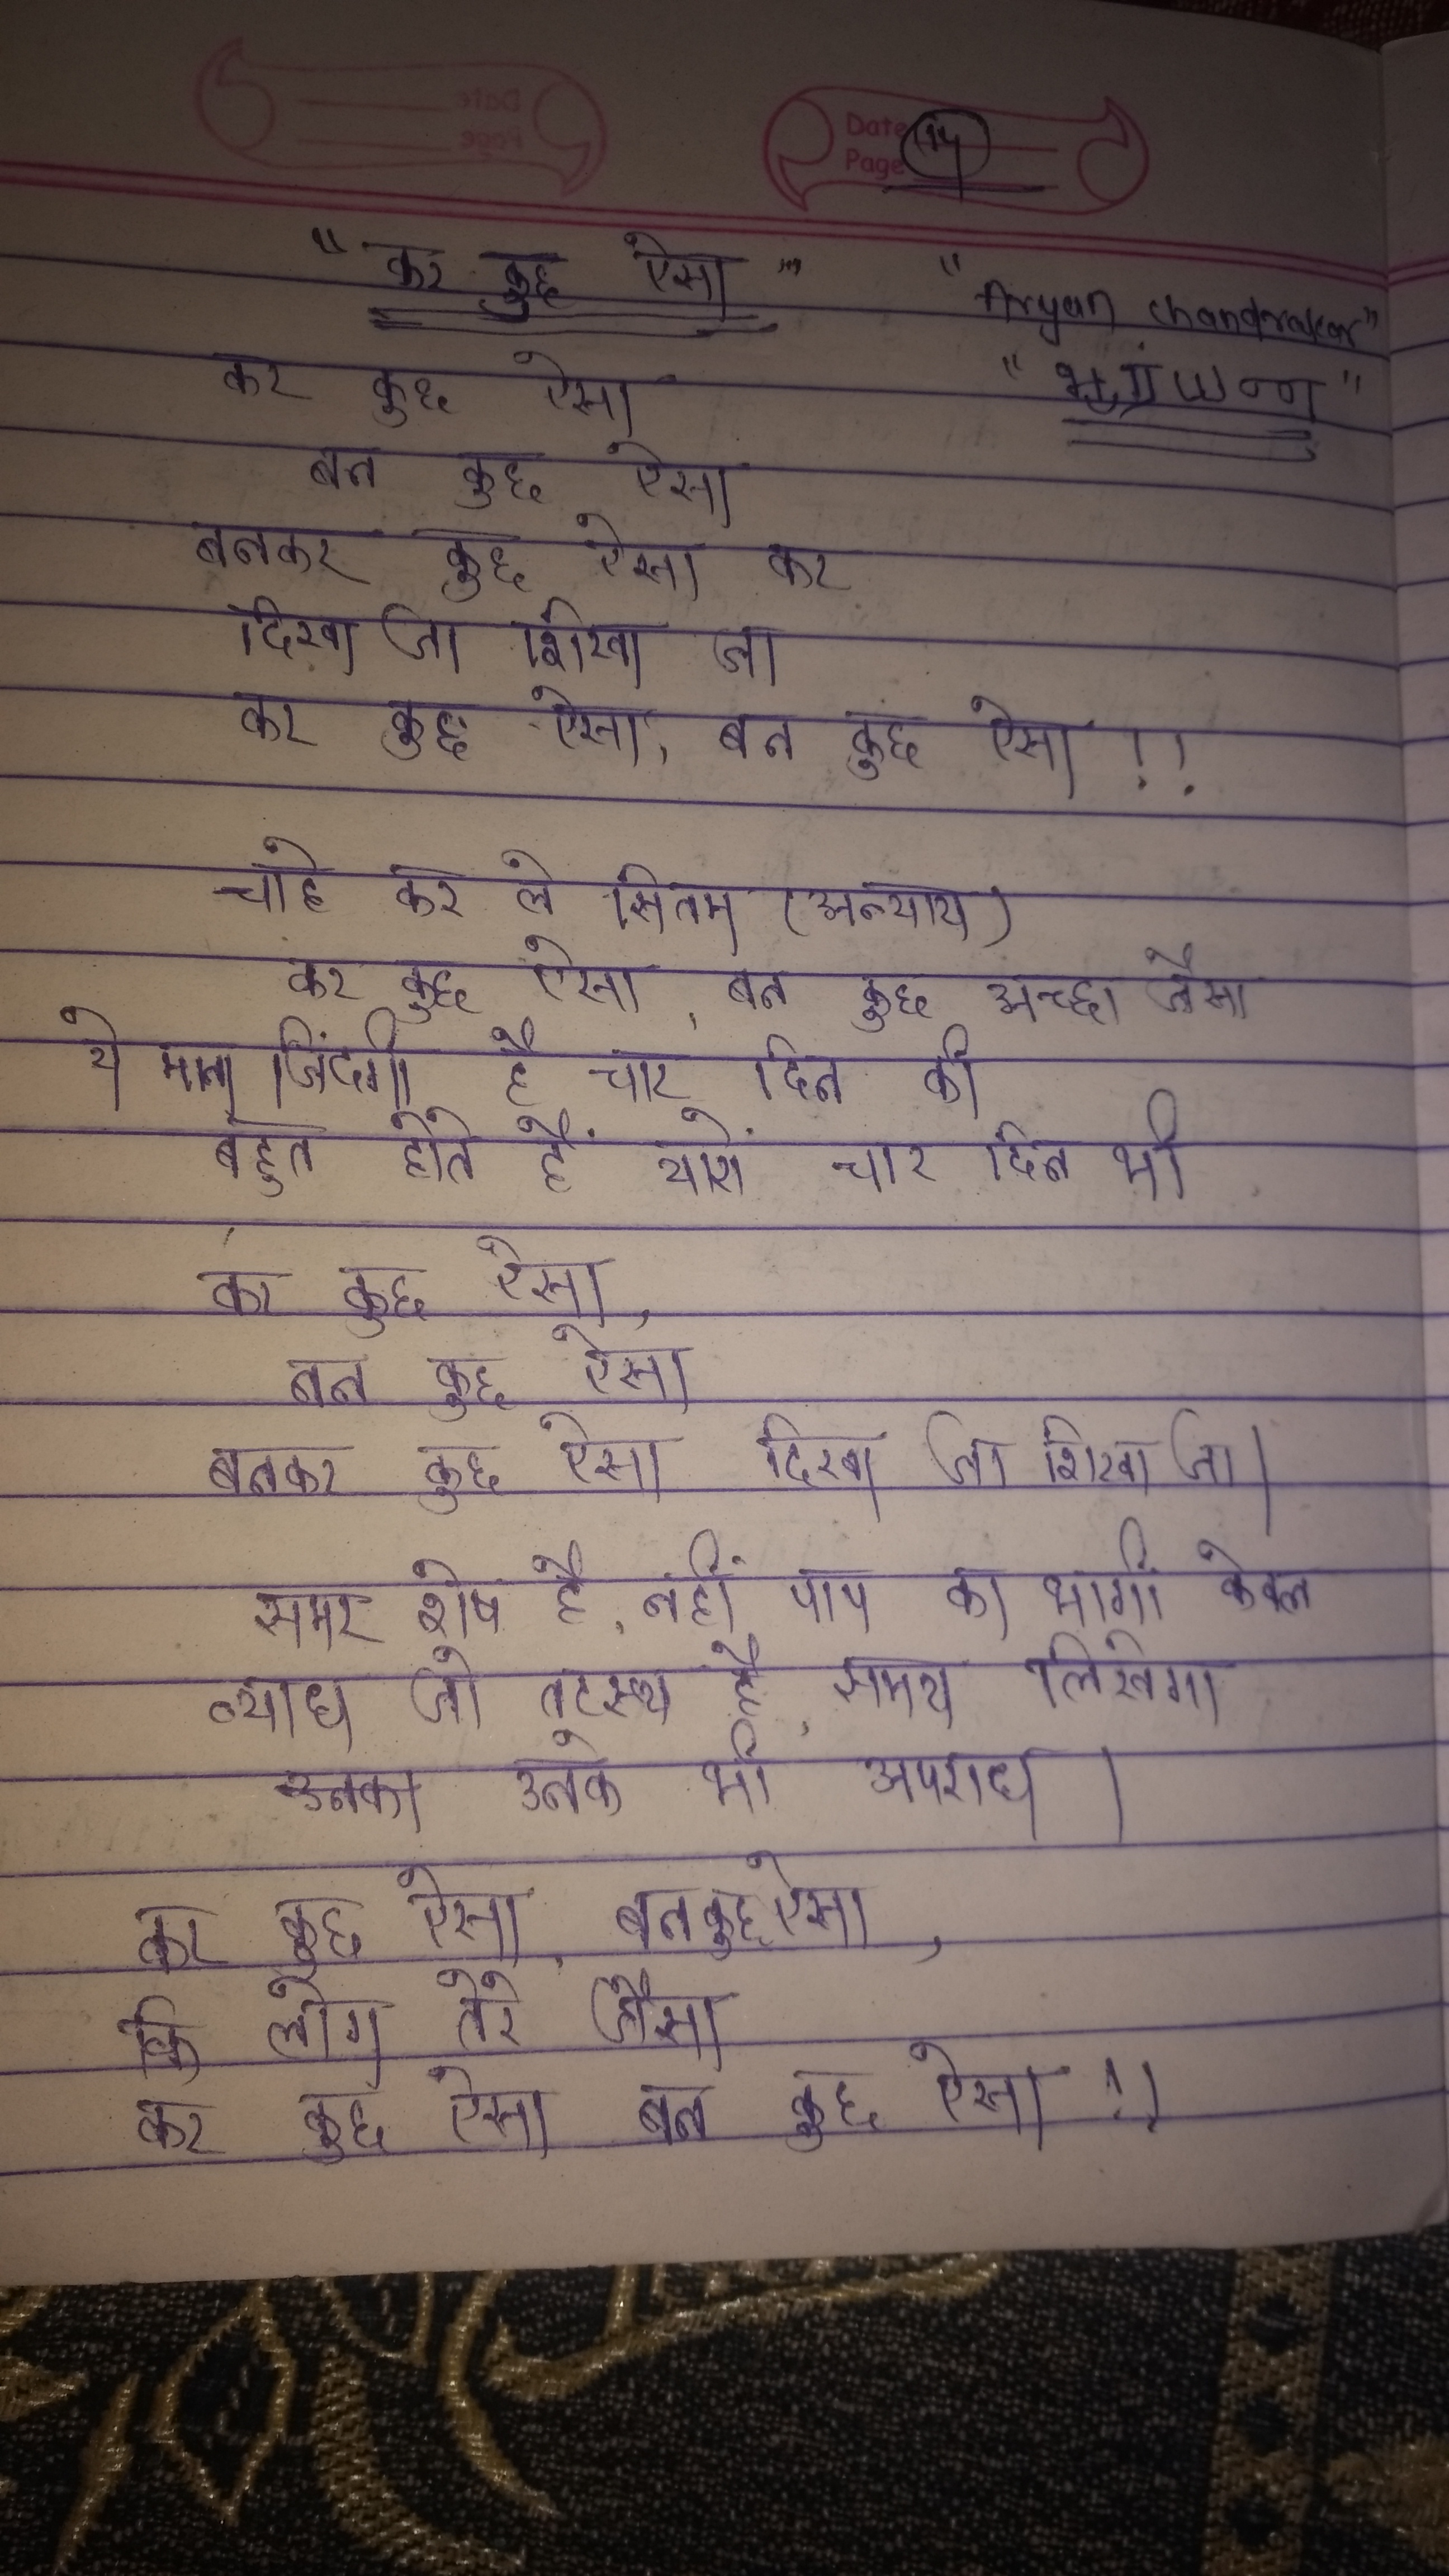 Date
Page 14
" कर कुछ ऐसा "
"Aryan Chandrakar"
कर कुछ ऐसा
बन कुछ ऐसा
बनकर कुछ ऐसा कर
दिखा जा शिखा जा
कर कुछ ऐसा, बन कुछ ऐसा !!
चाहे कर ले सितम (अन्याय)
कर कुछ ऐसा, बन कुछ अच्छा जैसा
ये माना जिंदगी है चार दिन की
बहुत होते हैं यारों चार दिन भी
कर कुछ ऐसा,
बन कुछ ऐसा
बनकर कुछ ऐसा दिखा जा शिखा जा।
समर शेष है, नहीं पाप का भागी केवल
व्याध जो तटस्थ है, समय लिखेगा
उनका उनके भी अपराध।
कर कुछ ऐसा, बनकुछऐसा,
कि लोग तेरे जैसा
कर कुछ ऐसा बन कुछ ऐसा !!